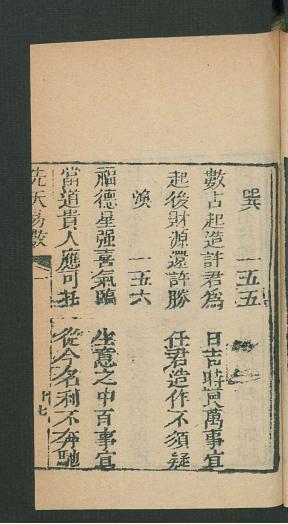 巽 一五五
數占起造許君爲 日吉時良萬事宜
起後財源還許勝 任君造作不須疑
渙 一五六
福德星强喜氣臨 生意之中百事宜
當道貴人應可托 從今名利不奔馳
先天易數 十七